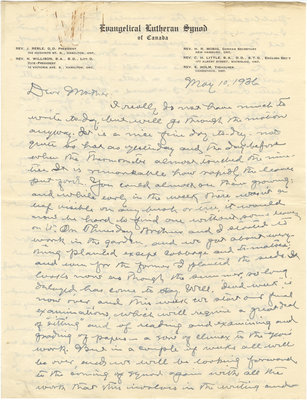 Evangelical Lutheran Synod
of Canada
REV. J. REBLE, D.D. PRESIDENT
HAMILTON, ONT.
REV. N. WILLISON, B.A. B.D. LITT.D.
VICE-PRESIDENT
HAMILTON, ONT.
REV. GERMAN SECRETARY
NEW HAMBURG, ONT.
REV. C. H. LITTLE, B.A. D.D., S.T.D. ENGLISH SEC'Y
WATERLOO, ONT.
REV. E. HOLM, TREASURER
May 10, 1936
Dear Mother,
I really do not have much to
write to-day but will go through the motion
anyway. It is a nice fine day to-day, not
quite so hot as yesterday and the day before
when the thermometer almost touched the nine-
ties. It is remarkable how rapidly the leaves
put forth. You could almost see them growing:
and while early in the week there wasn't a
leaf visible on any bush or tree, it would
now be hard to find one without some leaves
on it. On Thursday Arthur and I started to
work in the garden, and we got about every-
thing planted except cabbage and tomatoes,
and even for the former I planted the seed. It
looks now as though the summer so long
delayed has come to stay. Well, Seed week is
now over and this week we start our final
examinations, which will require a great deal
of sitting and of reading and examining and
grading of papers – a sort of climax to the year's
work. But in a couple of weeks all will
be over and we will be looking forward
to the coming of synod again with all the
work that this involves in the writing and